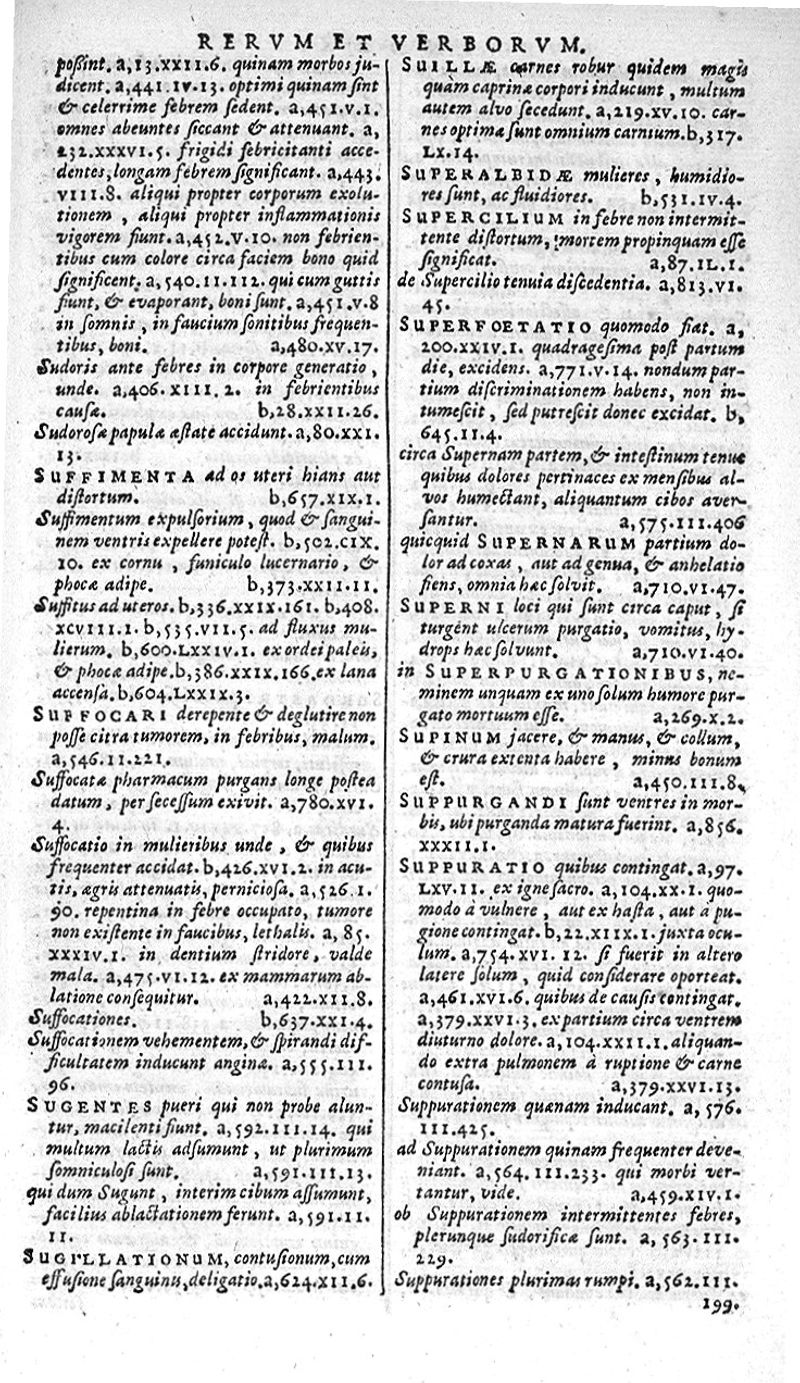 RERVM ET VERBORVM.
poſsint. a,13.XXII.6. quinam morbos ju-
dicent. a,441.IV.13. optimi quinam ſint
& celerrime febrem ſedent. a,451.V.1.
omnes abeuntes ſiccant & attenuant. a,
232.XXXVI.5. frigidi febricitanti acce-
dentes, longam febrem ſignificant. a,443.
VIII.8. aliqui propter corporum exolu-
tionem, aliqui propter inflammationis
vigorem fiunt. a,452.V.10. non febrien-
tibus cum colore circa faciem bono quid
ſignificent. a,540.II.112. qui cum guttis
fiunt, & evaporant, boni ſunt. a,451.V.8
in ſomnis, in faucium ſonitibus frequen-
tibus, boni. a,480.XV.17.
Sudoris ante febres in corpore generatio,
unde. a,406.XIII.2. in febrientibus
cauſæ. b,28.XXII.26.
Sudoroſæ papulæ æſtate accidunt. a,80.XXI.
13.
SUFFIMENTA ad os uteri hians aut
diſtortum. b,657.XIX.1.
Suffimentum expulſorium, quod & ſangui-
nem ventris expellere poteſt. b,502.CIX.
10. ex cornu, funiculo lucernario, &
phocæ adipe. b,373.XXII.11.
Suffitus ad uteros. b,336.XXIX.161. b,408.
XCVIII.1. b,535.VII.5. ad fluxus mu-
lierum. b,600.LXXIV.1. ex ordei paleis,
& phocæ adipe. b,386.XXIX.166. ex lana
accenſa. b,604.LXXIX.3.
SUFFOCARI derepente & deglutire non
poſſe citra tumorem, in febribus, malum.
a,546.II.221.
Suffocatæ pharmacum purgans longe poſtea
datum, per ſeceſſum exivit. a,780.XVI.
4.
Suffocatio in mulieribus unde, & quibus
frequenter accidat. b,426.XVI.2. in acu-
tis, ægris attenuatis, pernicioſa. a,526.I.
90. repentina in febre occupato, tumore
non exiſtente in faucibus, lethalis. a, 85.
XXXIV.1. in dentium ſtridore, valde
mala. a,475.VI.12. ex mammarum ab-
latione conſequitur. a,422.XII.8.
Suffocationes. b,637.XXI.4.
Suffocationem vehementem, & ſpirandi dif-
ficultatem inducunt anginæ. a,555.III.
96.
SUGENTES pueri qui non probe alun-
tur, macilenti fiunt. a,592.III.14. qui
multum lactis adſumunt, ut plurimum
ſomniculoſi ſunt. a,591.III.13.
qui dum Sugunt, interim cibum aſſumunt,
facilius ablactationem ferunt. a,591.II.
11.
SUGILLATIONUM, contuſionum, cum
effuſione ſanguinis, deligatio. a,624.XII.6.
SUILLÆ carnes robur quidem magis
quàm caprinæ corpori inducunt, multum
autem alvo ſecedunt. a,219.XV.10. car-
nes optimæ ſunt omnium carnium. b,317.
LX.14.
SUPERALBIDÆ mulieres, humidio-
res ſunt, ac fluidiores. b,531.IV.4.
SUPERCILIUM in febre non intermit-
tente diſtortum, mortem propinquam eſſe
ſignificat. a,87.IL.1.
de Supercilio tenuia diſcedentia. a,813.VI.
45.
SUPERFOETATIO quomodo fiat. a,
200.XXIV.1. quadrageſima poſt partum
die, excidens. a,771.V.14. nondum par-
tium diſcriminationem habens, non in-
tumeſcit, ſed putreſcit donec excidat. b,
645.II.4.
circa Supernam partem, & inteſtinum tenue
quibus dolores pertinaces ex menſibus al-
vos humectant, aliquantum cibos aver-
ſantur. a,575.III.406
quicquid SUPERNARUM partium do-
lor ad coxas, aut ad genua, & anhelatio
fiens, omnia hæc ſolvit. a,710.VI.47.
SUPERNI loci qui ſunt circa caput, ſi
turgent ulcerum purgatio, vomitus, hy-
drops hæc ſolvunt. a,710.VI.40.
in SUPERPURGATIONIBUS, ne-
minem unquam ex uno ſolum humore pur-
gato mortuum eſſe. a,269.X.2.
SUPINUM jacere, & manus, & collum,
& crura extenta habere, minus bonum
eſt. a,450.III.8.
SUPPURGANDI ſunt ventres in mor-
bis, ubi purganda matura fuerint. a,856.
XXXII.1.
SUPPURATIO quibus contingat. a,97.
LXV.11. ex igne ſacro. a,104.XX.1. quo-
modo à vulnere, aut ex haſta, aut à pu-
gione contingat. b,22.XIIX.1. juxta ocu-
lum. a,754.XVI. 12. ſi fuerit in altero
latere ſolum, quid conſiderare oporteat.
a,461.XVI.6. quibus de cauſis contingat.
a,379.XXVI.3. ex partium circa ventrem
diuturno dolore. a,104.XXII.1. aliquan-
do extra pulmonem à ruptione & carne
contuſa. a,379.XXVI.13.
Suppurationem quænam inducant. a, 576.
III.425.
ad Suppurationem quinam frequenter deve-
niant. a,564.III.233. qui morbi ver-
tantur, vide. a,459.XIV.1.
ob Suppurationem intermittentes febres,
plerunque ſudorificæ ſunt. a, 563.III.
229.
Suppurationes plurimas rumpi. a,562.III.
199.